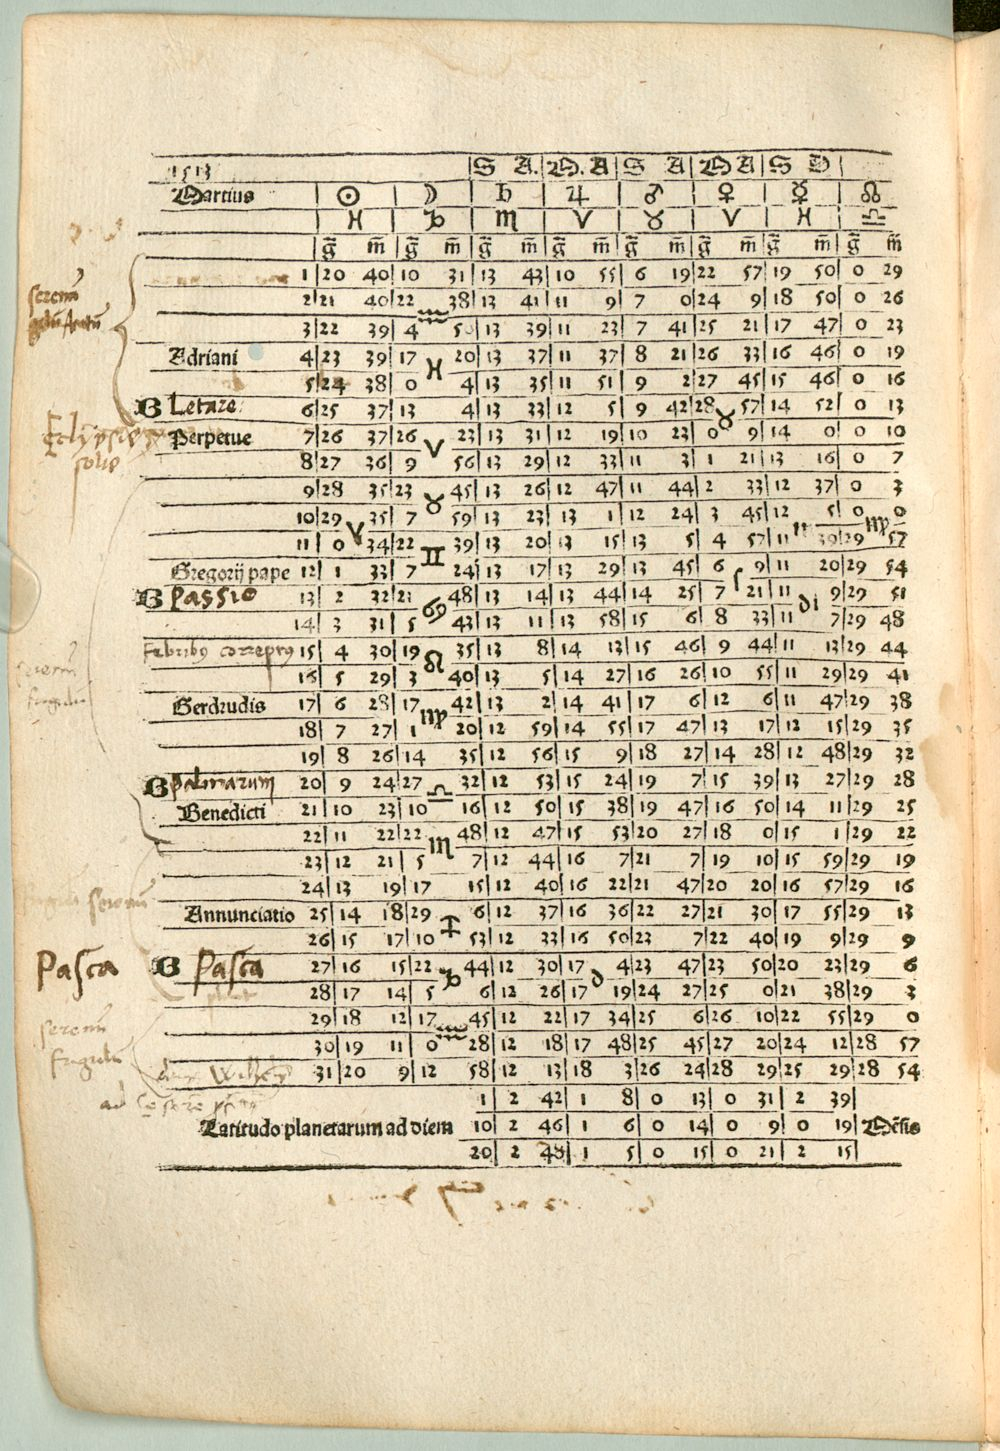 1513 S A. M. A S A M A S D
Martius ☉ ☽ ♄ ♃ ♂ ♀ ☿ ☊
♓ ♑ ♏ ♈ ♉ ♈ ♓ ♎
g̃ m̃ g̃ m̃ g̃ m̃ g̃ m̃ g̃ m̃ g̃ m̃ g̃ m̃ g̃ m̃
1 20 40 10 31 13 43 10 55 6 19 22 57 19 50 0 29
2 21 40 22 38 13 41 11 9 7 0 24 9 18 50 0 26
3 22 39 4 ♒ 50 13 39 11 23 7 41 25 21 17 47 0 23
Adriani 4 23 39 17 20 13 37 11 37 8 21 26 33 16 46 0 19
5 24 38 0 ♓ 4 13 35 11 51 9 2 27 45 15 46 0 16
B Letare 6 25 37 13 4 13 33 12 5 9 42 28 57 14 52 0 13
Eclipsis
solis
Perpetue 7 26 37 26 23 13 31 12 19 10 23 0 ♉ 9 14 0 0 10
8 27 36 9 ♈ 56 13 29 12 33 11 3 1 21 13 16 0 7
9 28 35 23 45 13 26 12 47 11 44 2 33 12 37 0 3
10 29 35 7 ♉ 59 13 23 13 1 12 24 3 45 12 5 0 0
11 0 ♈ 34 22 39 13 20 13 15 13 5 4 57 11 39 29 ♍ 57
Gregorij pape 12 1 33 7 ♊ 24 13 17 13 29 13 45 6 9 11 20 29 54
B Passio 13 2 32 21 48 13 14 13 44 14 25 7 21 11 9 29 51
14 3 31 5 ♋ 43 13 11 13 58 15 6 8 33 11 di 7 29 48
15 4 30 19 35 13 8 14 13 15 46 9 44 11 13 29 44
16 5 29 3 ♌ 40 13 5 14 27 16 26 10 55 11 29 29 41
Gerdrudis 17 6 28 17 42 13 2 14 41 17 6 12 6 11 47 29 38
18 7 27 1 ♍ 20 12 59 14 55 17 47 13 17 12 15 29 35
19 8 26 14 35 12 56 15 9 18 27 14 28 12 48 29 32
B palmarum 20 9 24 27 32 12 53 15 24 19 7 15 39 13 27 29 28
Benedicti 21 10 23 10 ♎ 16 12 50 15 38 19 47 16 50 14 11 29 25
22 11 22 22 48 12 47 15 53 20 27 18 0 15 1 29 22
23 12 21 5 ♏ 7 12 44 16 7 21 7 19 10 15 59 29 19
24 13 19 17 15 12 40 16 22 21 47 20 20 16 57 29 16
Annunciatio 25 14 18 29 6 12 37 16 36 22 27 21 30 17 55 29 13
26 15 17 10 ♐ 53 12 33 16 50 23 7 22 40 19 9 29 9
Pasca B Pasca 27 16 15 22 44 12 30 17 4 23 47 23 50 20 23 29 6
28 17 14 5 ♑ 6 12 26 17 19 24 27 25 0 21 38 29 3
29 18 12 17 45 12 22 17 34 25 6 26 10 22 55 29 0
30 19 11 0 ♒ 28 12 18 17 48 25 45 27 20 24 12 28 57
31 20 9 12 58 12 13 18 3 26 24 28 29 25 29 28 54
1 2 42 1 8 0 13 0 31 2 39
Latitudo planetarum ad diem 10 2 46 1 6 0 14 0 9 0 19 Mẽsis
20 2 48 1 5 0 15 0 21 2 15